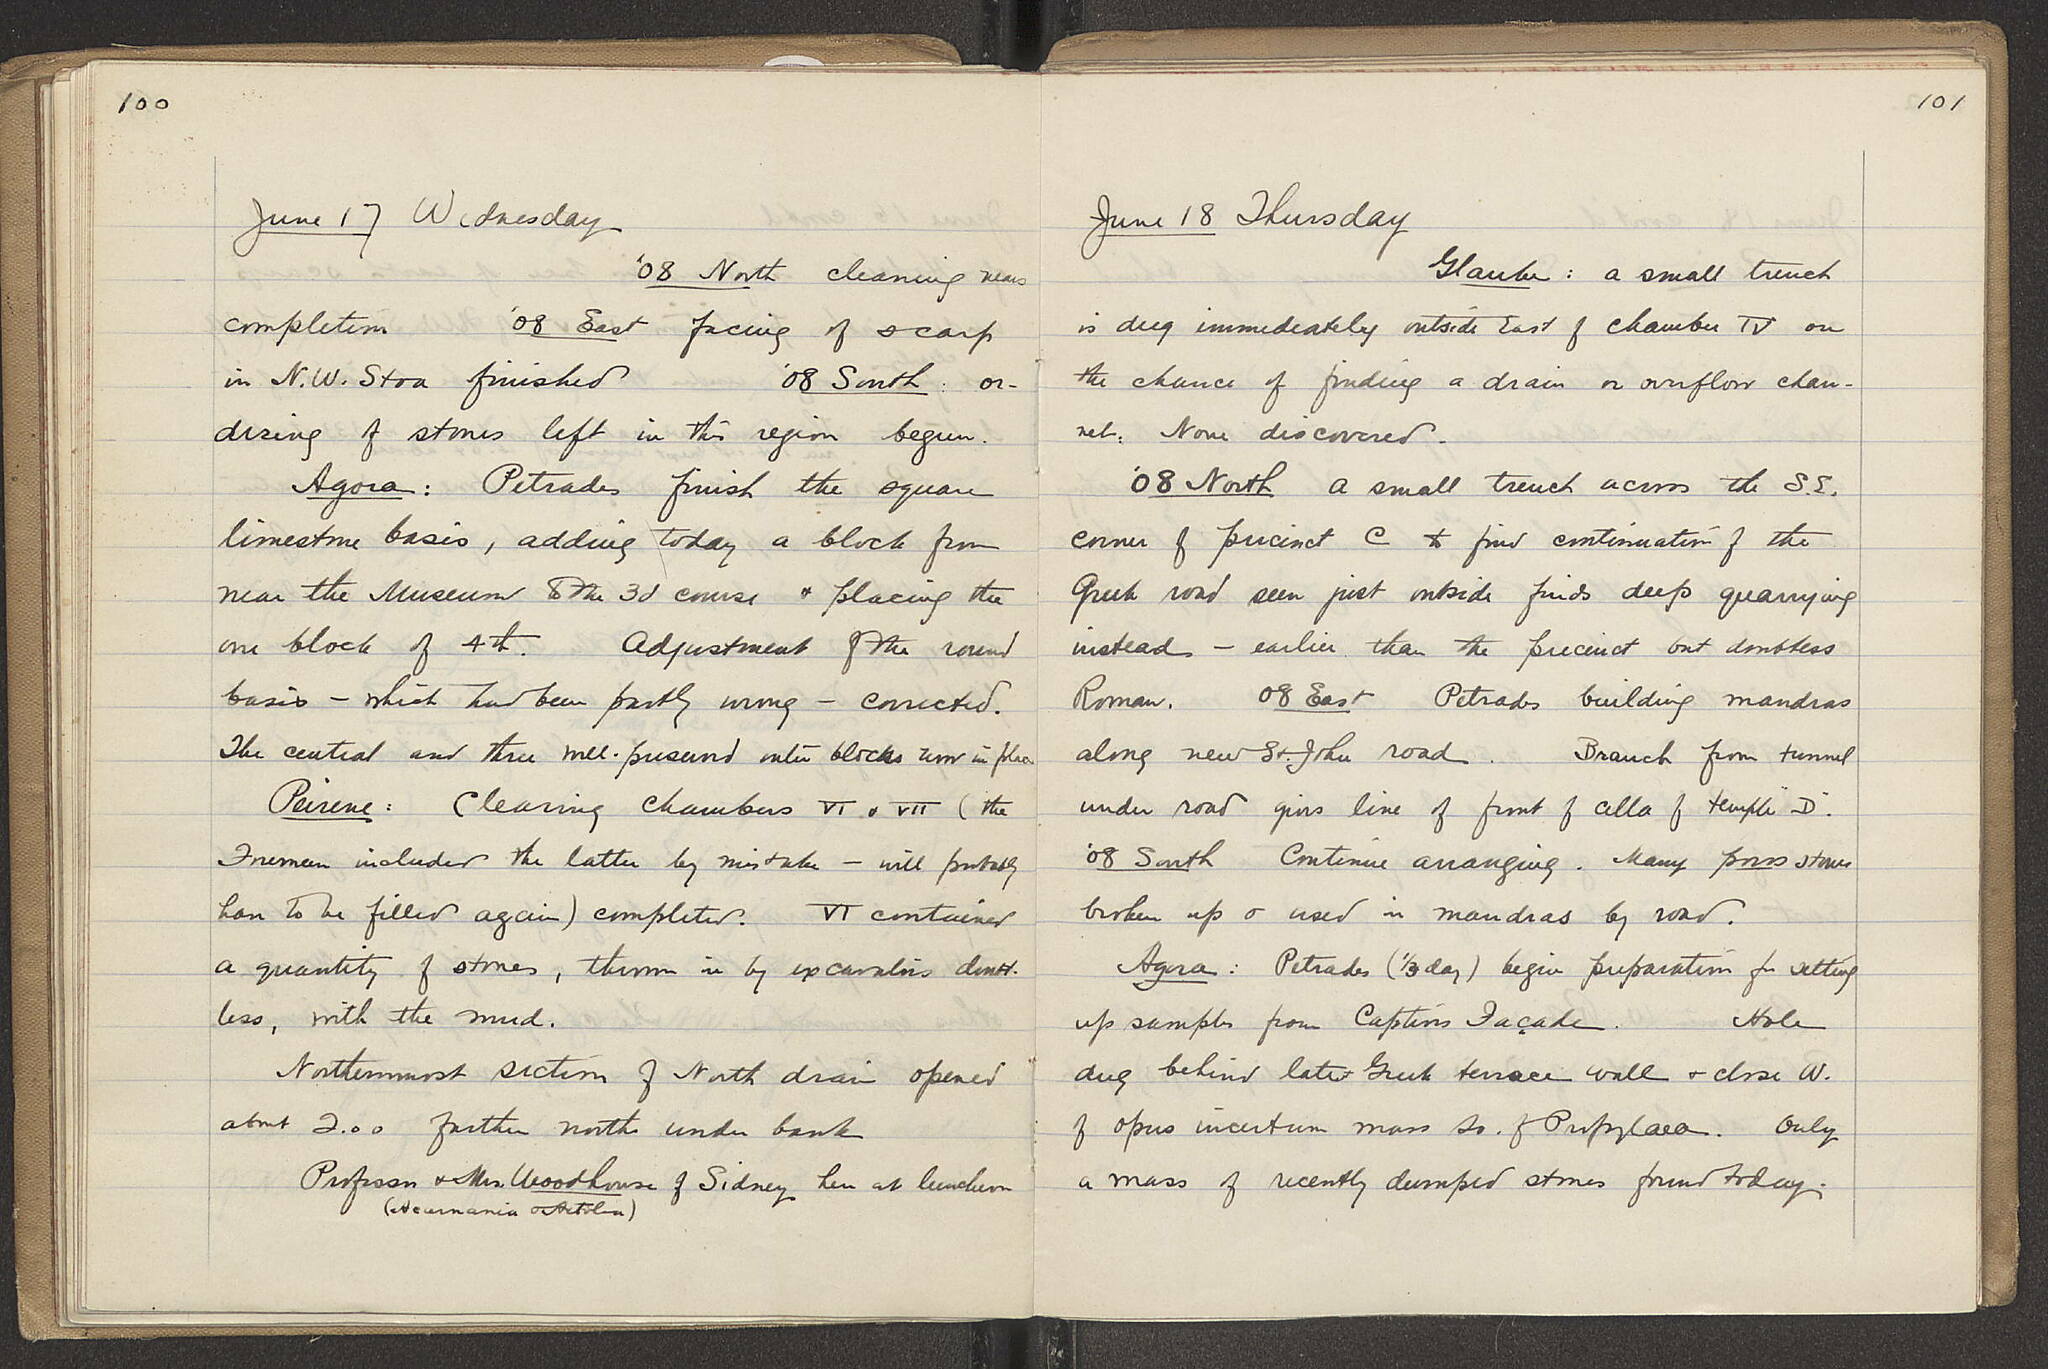 100
June 17 Wednesday
'08 North cleaning nears
completion '08 East facing of scarp
in N.W. Stoa finished '08 South: or-
dering of stones left in this region begun.
Agora: Petrades finish the square
limestone basis, adding today a block from
near the Museum to the 3d course & placing the
one block of 4th. Adjustment of the round
basis – which had been partly wrong – corrected.
The central and three well-preserved outer blocks now in place
Peirene: Clearing chambers VI & VII (the
Foreman included the latter by mistake – will probably
have to be filled again) completed. VI contained
a quantity of stones, thrown in by excavators doubt-
less, with the mud.
Northernmost section of North drain opened
about 2.00 further north under bank
Professor & Mrs. Woodhouse of Sidney here at luncheon
(Acarnania & Aetolia)
101
June 18 Thursday
Glauke: a small trench
is dug immediately outside East of chamber IV on
the chance of finding a drain or overflow chan-
nel: None discovered.
'08 North a small trench across the S.E.
corner of precinct C to find continuation of the
Greek road seen just outside finds deep quarrying
instead – earlier than the precinct but doubtless
Roman. 08 East Petrades building mandras
along new St. John road. Branch from tunnel
under road gives line of front of cella of temple "D".
'08 South Continue arranging. Many poros stones
broken up & used in mandras by road.
Agora: Petrades (1/3 day) begin preparation for setting
up samples from Captives Façade. Hole
dug behind later Greek terrace wall & close W.
of opus incertum mass So. of Propylaea. Only
a mass of recently dumped stones found today.